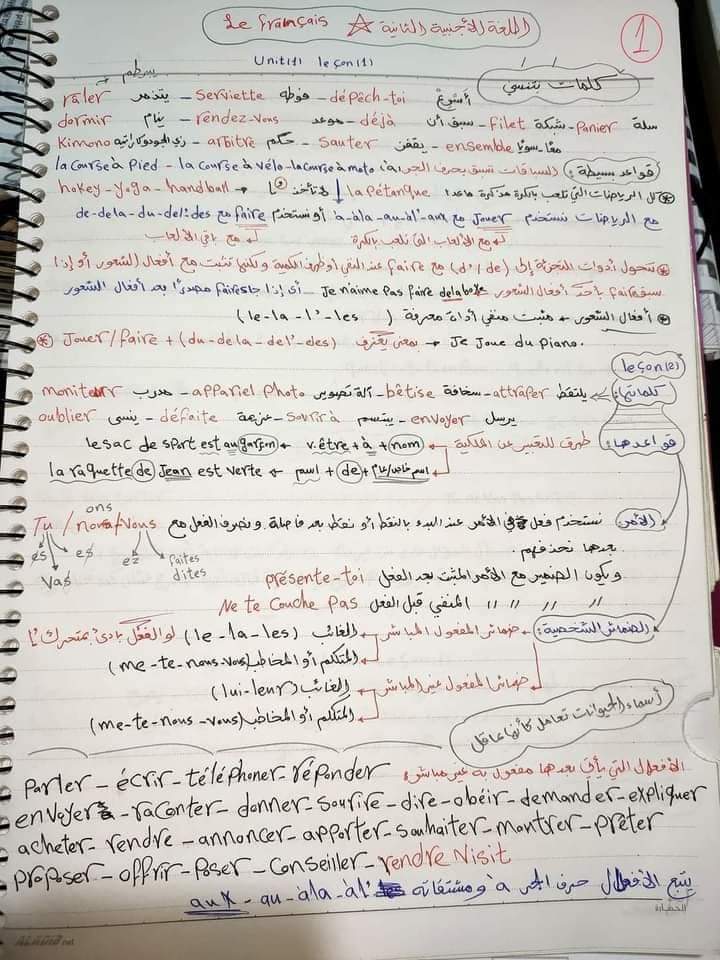 اللغة الأجنبية الثانية ☆ Le français
1
Unit(1) leçon(1)
كلمات بتنسي
râler يتذمر – serviette فوطه – dépêch-toi أسرع
dormir ينام – rendez-vous موعد – déjà سبق أن – Filet شبكة – Panier سلة
Kimono زي الجودو كاراتيه – arbitre حكم – Sauter يقفز – ensemble معًا-سويًا
قواعد بسيطة: السباقات تسبق بحرف الجر à la course à Pied – la course à vélo – la course à moto
كل الرياضات التي تلعب بالكرة مذكرة ماعدا la Pétanque
hokey – yoga – handball لا تأخذ
مع الرياضات نستخدم Jouer مع à-àla-au-àl'-aux أو نستخدم faire مع de-dela-du-del'-des
مع الألعاب التي تلعب بالكرة
مع باقي الألعاب
تتحول أدوات التجزئة إلى (d'/de) مع faire عند النفي أو ظرف الكمية ولكنها تثبت مع أفعال الشعور أو إذا
Je n'aime pas faire dela boxe أى إذا جاء faire مصدرًا بعد أفعال الشعور
أفعال الشعور + مثبت منفي أداة معرفة (le-la-l'-les)
Jouer/faire + (du-dela-del'-des) بمعنى يعزف Je Joue du piano.
leçon(2)
كلماتها: attraper يلتقط – bêtise سخافة – appariel photo آلة تصوير – moniteur مدرب
envoyer يرسل – sourire يبتسم – défaite هزيمة – oublier ينسى
قواعدها: طرق التعبير عن الملكية v.être + à + nom le sac de sport est au garçon
اسم خاص/عام + de + اسم la raquette de Jean est verte
الأمر: نستخدم فعل في الأمر عند البدء بالنقط أو نقط بعد فاصلة ونصرف الفعل مع Tu / nous / vous
ons
es es ez faites
vas dites
بعدها نحذفهم.
ويكون الضمير مع الأمر المثبت بعد الفعل présente-toi
〃 〃 〃 〃 المنفي قبل الفعل Ne te couche pas
الضمائر الشخصية: ضمائر المفعول المباشر الغائب (le-la-les) لو الفعل بادئ بمتحرك l'
المتكلم أو المخاطب (me-te-nous-vous)
ضمائر المفعول غير المباشر الغائب (lui-leur)
المتكلم أو المخاطب (me-te-nous-vous)
أسماء الحيوانات تعامل كأنها عاقل
الأفعال التي يأتي بعدها مفعول به غير مباشر:
Parler – écrir – téléphoner – réponder
envoyer – raconter – donner – sourire – dire – obéir – demander – expliquer
acheter – rendre – annoncer – apporter – souhaiter – montrer – prêter
proposer – offrir – Poser – Conseiller – rendre Visit
يتبع الأفعال حرف الجر à ومشتقاته aux – au – àla – àl'
الحضارة